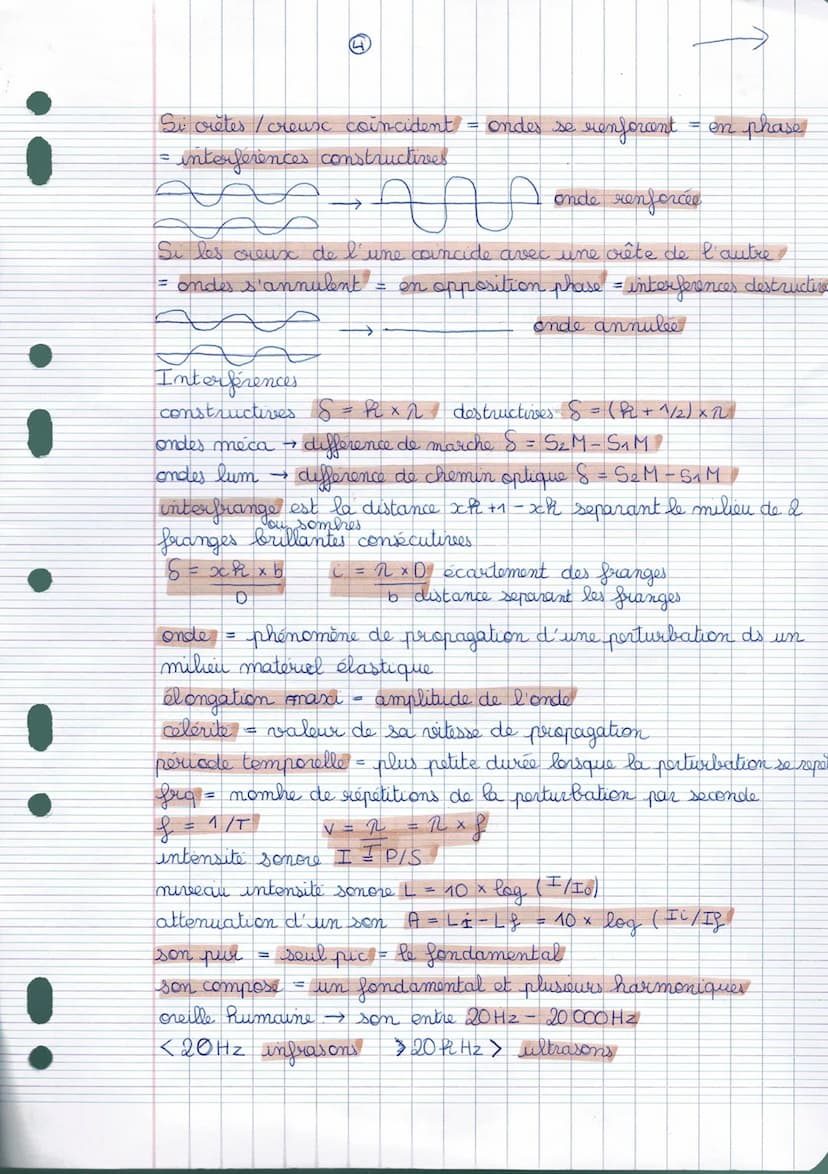 4
Si crêtes / creux coïncident = ondes se renforcent = en phase
= interférences constructives
→ onde renforcée
Si les creux de l'une coincide avec une crête de l'autre
= ondes s'annulent = en opposition phase = interferences destructive
→ onde annulée
Interférences
constructives δ = k × λ destructives δ = (k + 1/2) × λ
ondes méca → différence de marche δ = S2M - S1M
ondes lum → différence de chemin optique δ = S2M - S1M
interfrange est la distance xk+1 - xk separant le milieu de 2
ou sombres
franges brillantes consécutives
δ = xk × b / D i = λ × D / b écartement des franges
distance separant les franges
onde = phénomène de propagation d'une perturbation ds un
milieu matériel élastique
élongation maxi = amplitude de l'onde
célérité = valeur de sa vitesse de propagation
période temporelle = plus petite durée lorsque la perturbation se repèt
frq = nombre de répétitions de la perturbation par seconde
f = 1/T v = λ / T = λ × f
intensité sonore I = P/S
niveau intensité sonore L = 10 × log (I/I0)
attenuation d'un son A = Li - Lf = 10 × log (Ii/If
son pur = seul pic = le fondamental
son composé = un fondamental et plusieurs harmoniques
oreille humaine → son entre 20Hz - 20 000Hz
< 20Hz infrasons > 20kHz > ultrasons